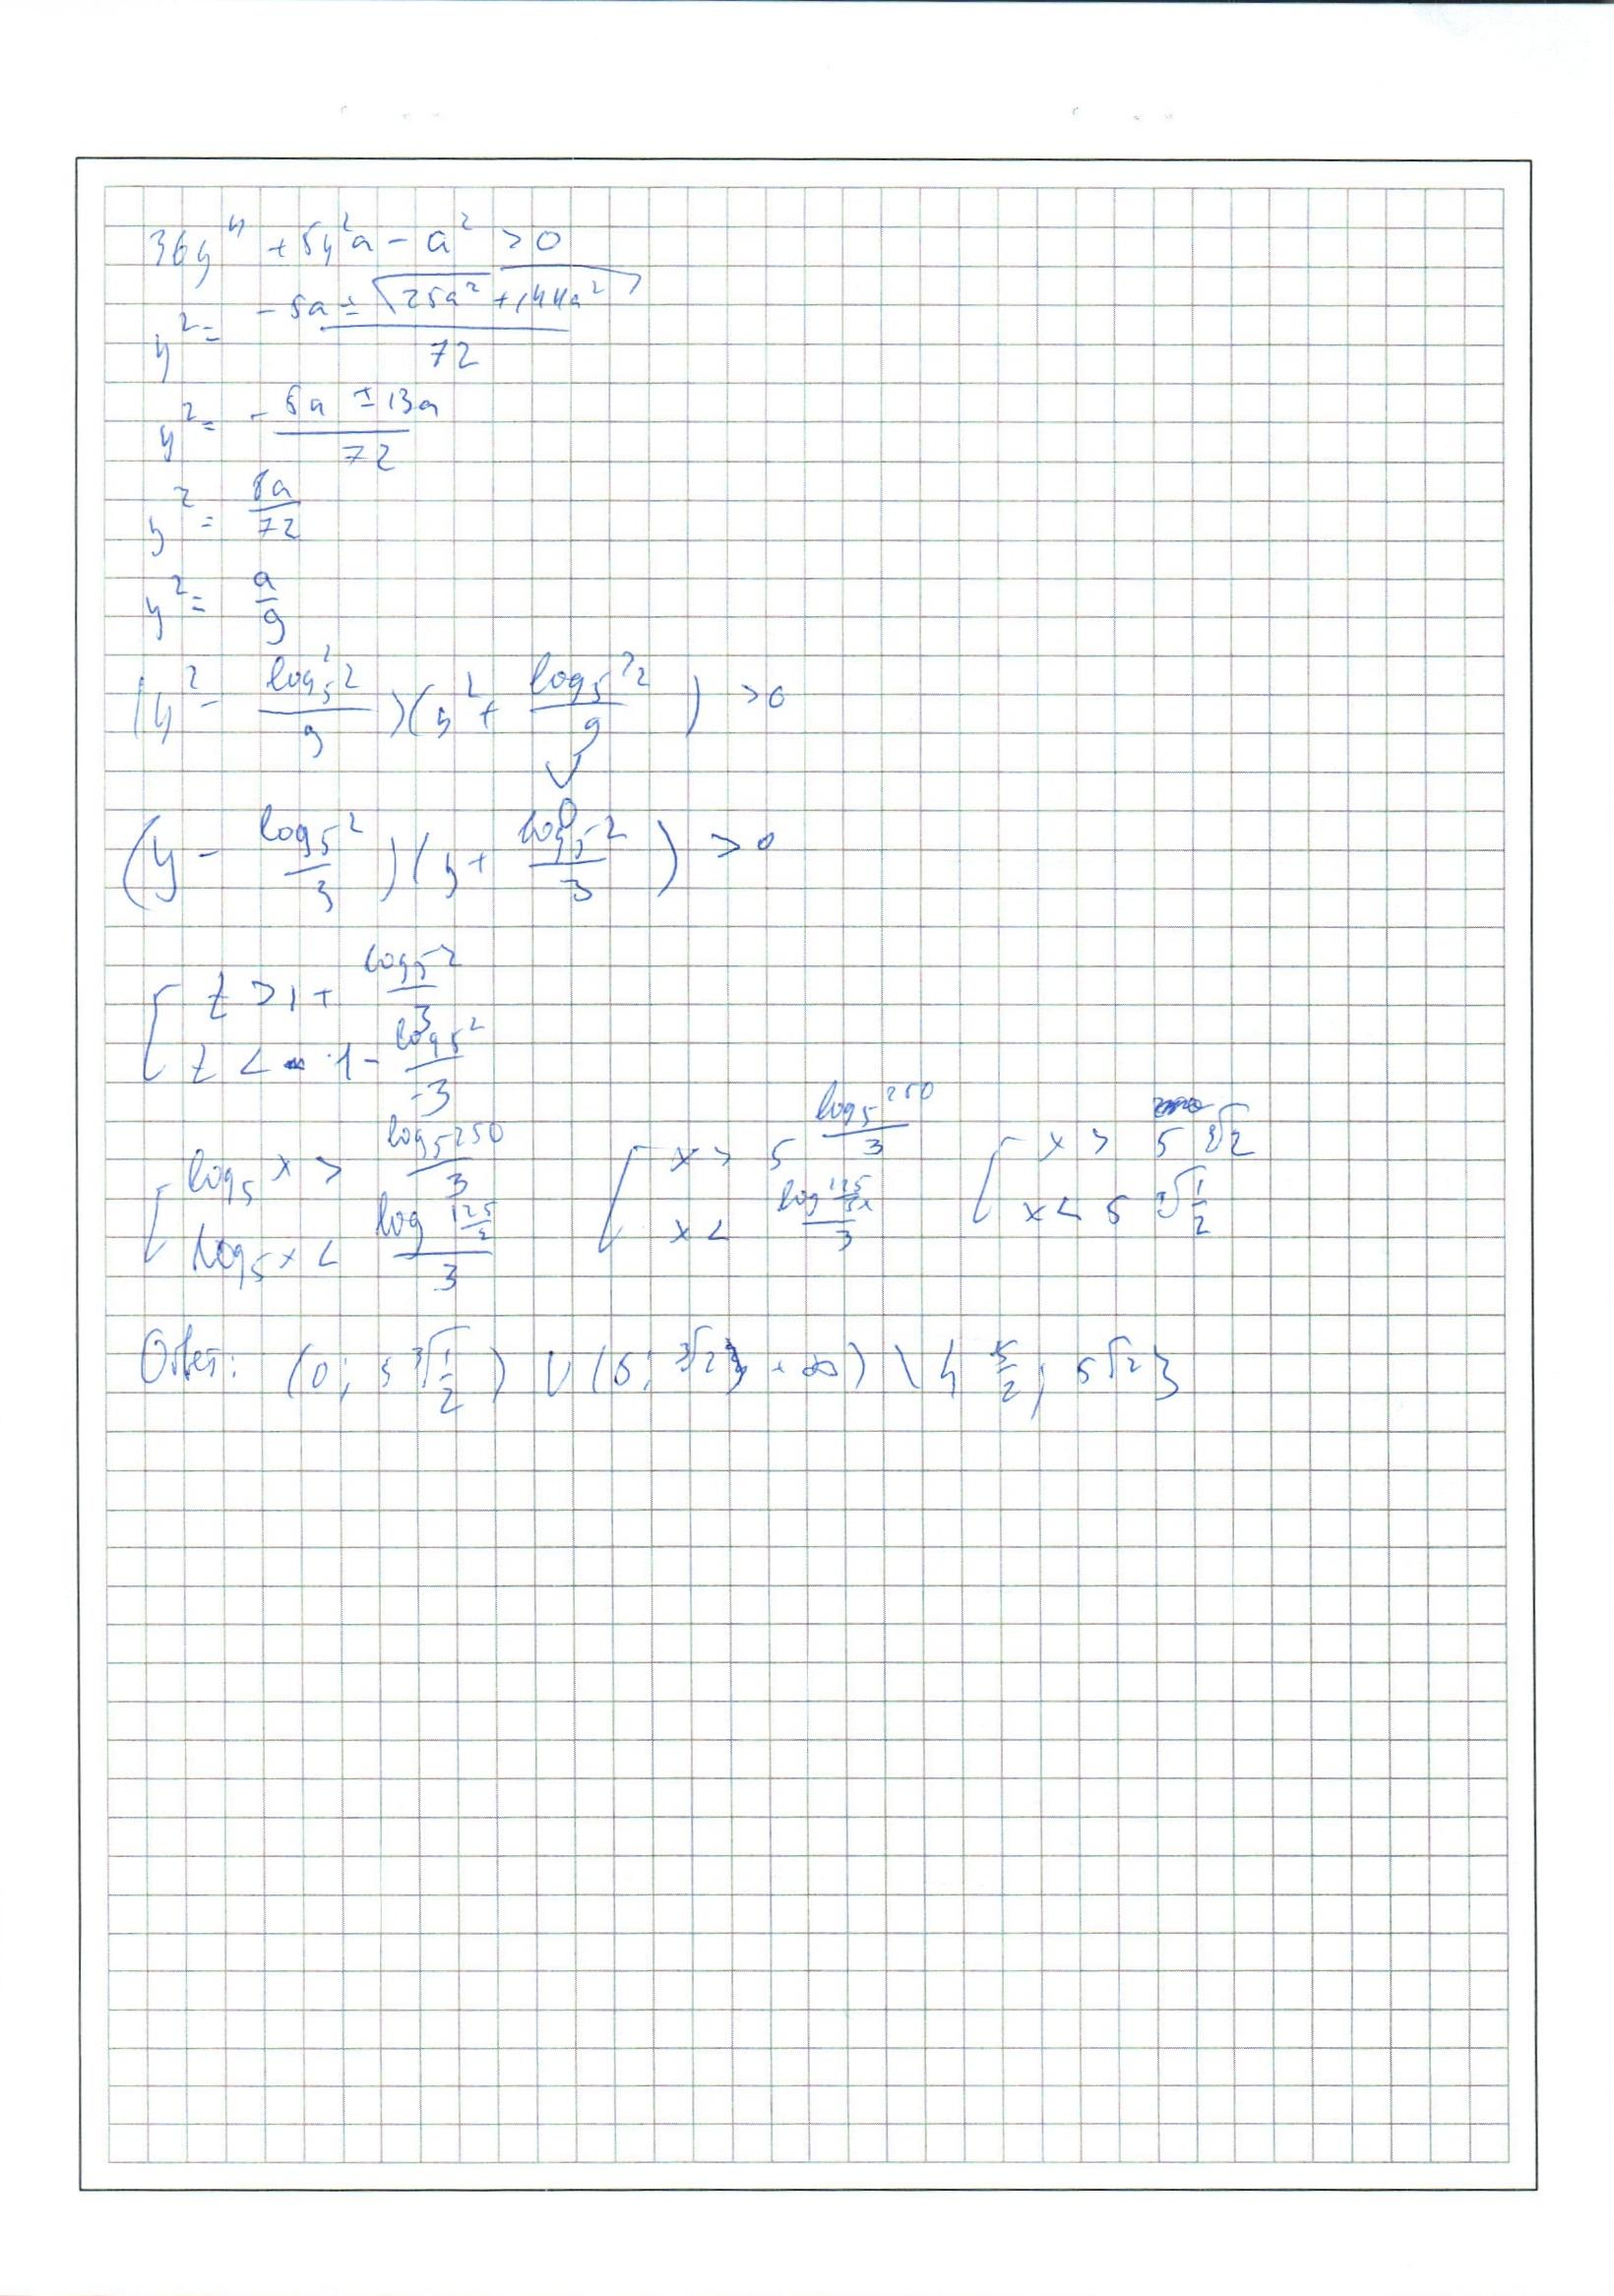 36y⁴ + 5y²a - a² > 0
y² = (-5a ± √(25a² + 144a²)) / 72
y² = (-5a ± 13a) / 72
y² = 8a / 72
y² = a / 9
(y² - log₅²2 / 9)(y² + log₅²2 / 9) > 0
∨
0
(y - log₅2 / 3)(y + log₅2 / 3) > 0
[ z > 1 + log₅2 / 3
z < 1 - log₅2 / 3
[ log₅x > log₅250 / 3 [ x > 5^(log₅250 / 3) [ x > 5∛2
log₅x < log 125/2 / 3 x < log 125/2 / 3 x < 5∛(1/2)
Ответ: (0; 5∛(1/2)) ∪ (5; ∛2; +∞) \ { 5/2; 5√2 }